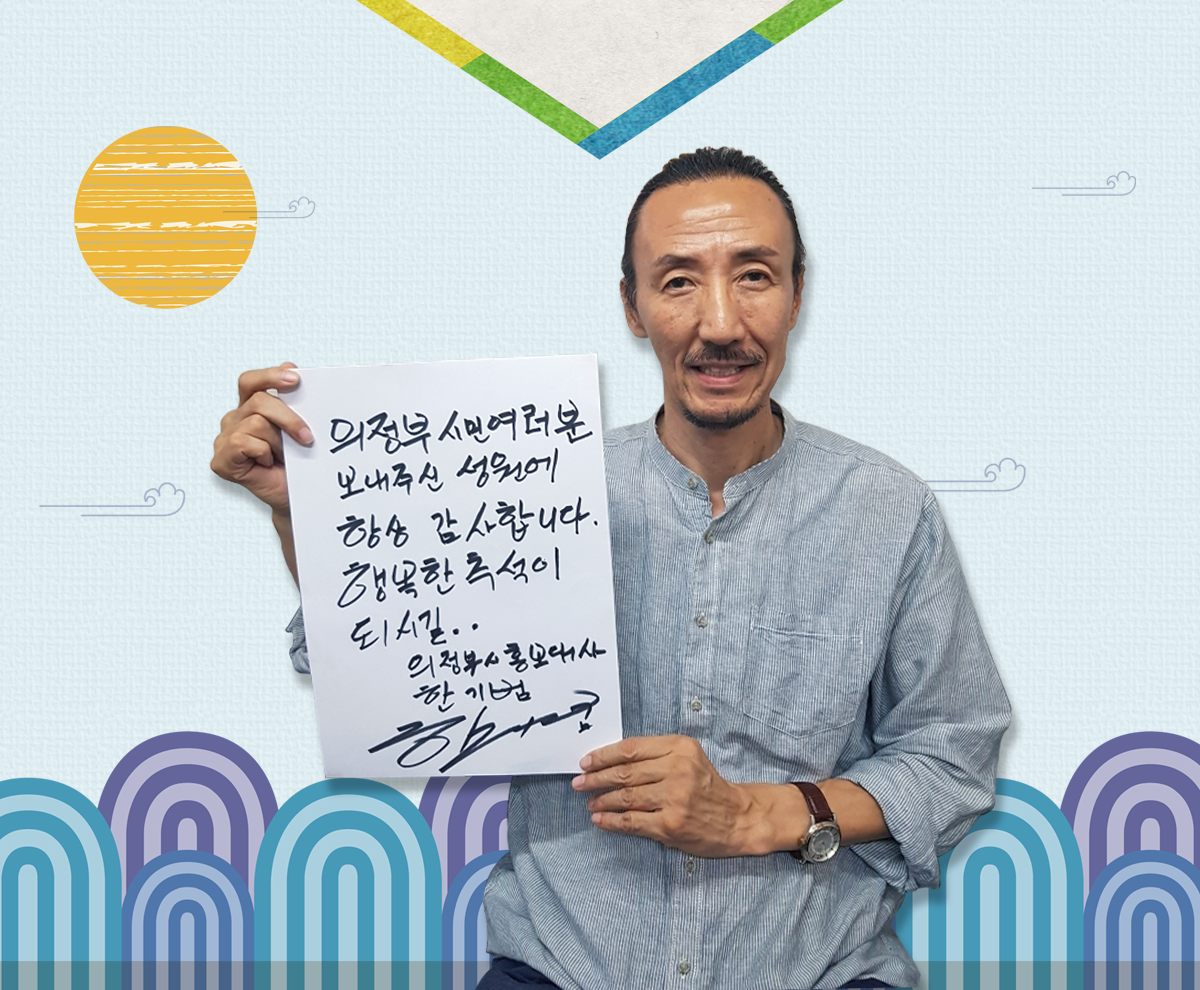 의정부 시민여러분
보내주신 성원에
항상 감사합니다.
행복한 추석이
되시길..
의정부시 홍보대사
한기범